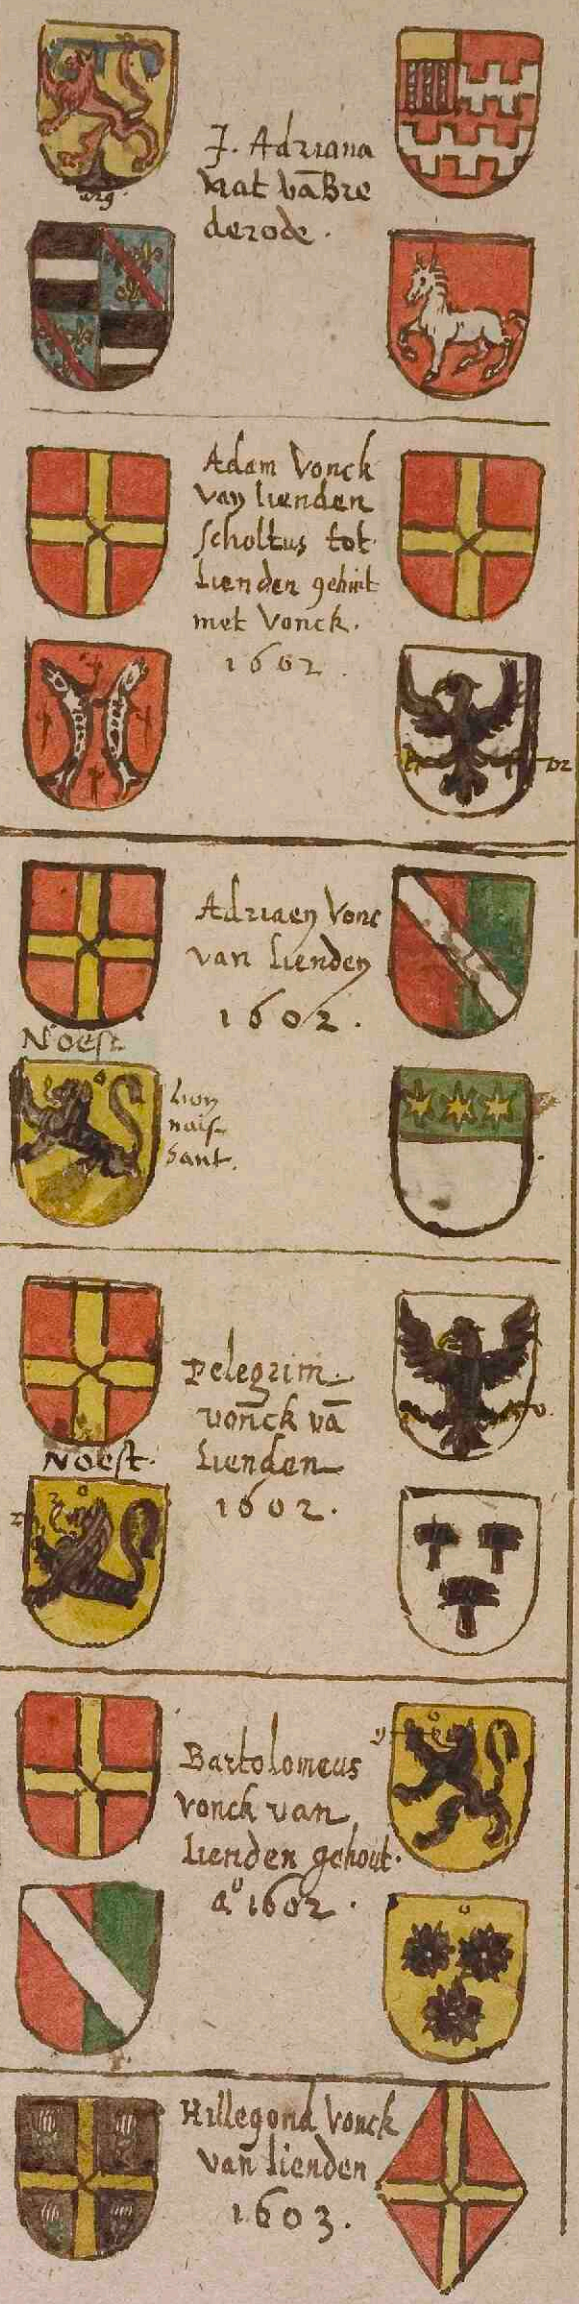 J. Adriana
nat vā Bre
derode.
arg.
Adam Vonck
van lienden
scholtus tot
Lienden gehint
met Vonck.
1602
or
Adriaen Vonc
van Lienden
1602.
Noest
Lion
nais
sant.
Pelegrim
vonck vā
Lienden
1602.
Noest.
v.
Bartolomeus
vonck van
lienden gehout.
a° 1602.
v
o
o
Hillegond Vonck
van lienden
1603.